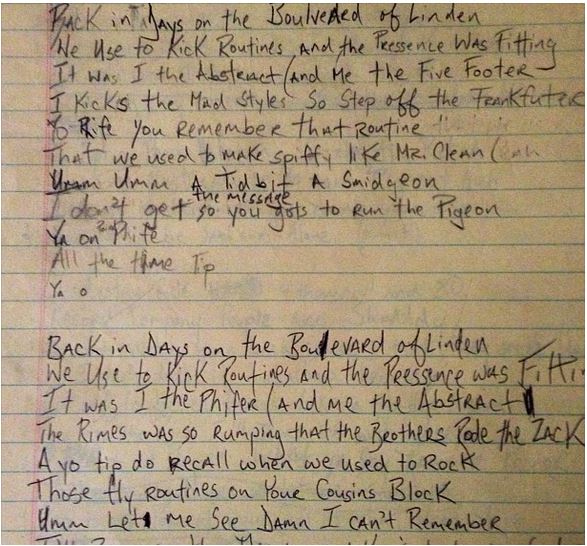 Back in Days on the Boulvered of Linden
We Use to Kick Routines and the Pressence Was Fitting
It was I the Abstract (And Me the Five Footer
I Kicks the Mad Styles So Step off the Frankfuter
Yo Rife you Remember that Routine
That we used to make spiffy like Mr. Clean (
Umm Umm A Tidbit A Smidgeon
the message
I don't get so you gots to Run the Pigeon
Ya on Phife
All the time Tip
Ya o
Back in Days on the Boulevard of Linden
We Use to Kick Routines and the Pressence was
It was I the Phifer (And me the Abstract
The Rimes was so Rumping that the Brothers Rode the Zack
A yo tip do recall when we used to Rock
Those fly Routines on Your Cousins Block
Umm Let me See Damn I can't Remember